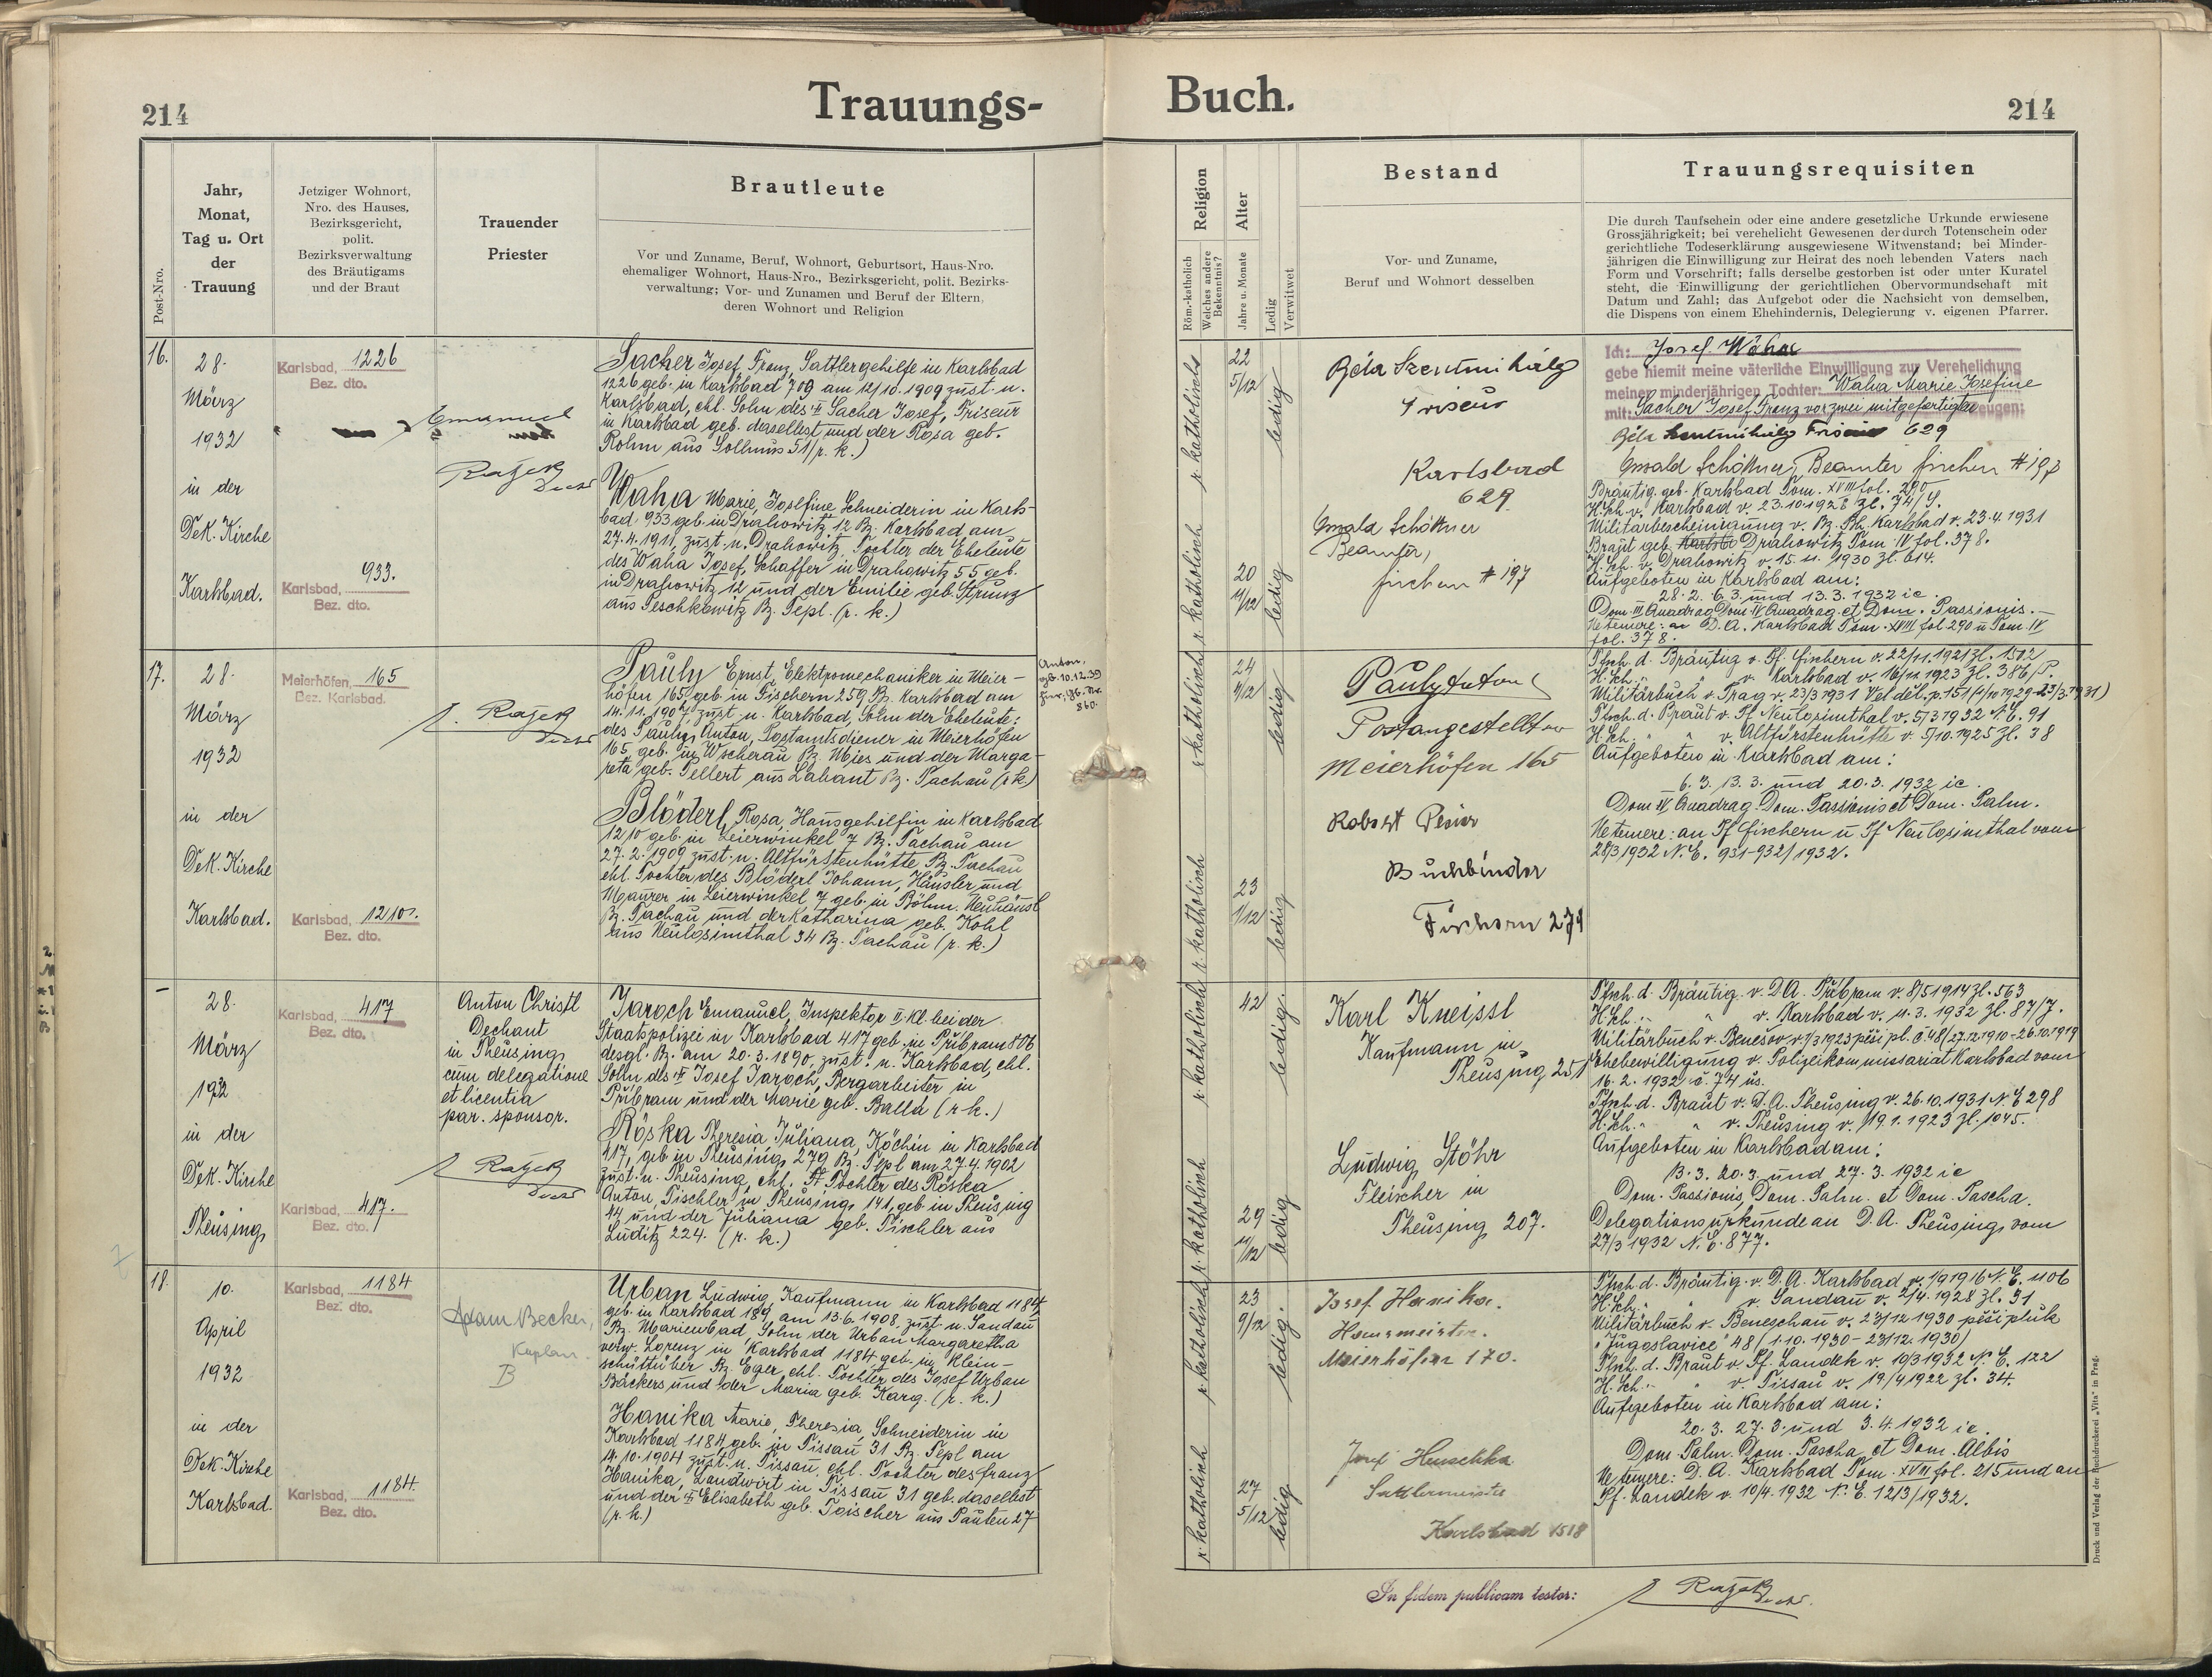 214
Trauungs-
Buch.
214
Post-Nro.
Jahr,
Monat,
Tag u. Ort
der
Trauung
Jetziger Wohnort,
Nro. des Hauses,
Bezirksgericht,
polit.
Bezirksverwaltung
des Bräutigams
und der Braut
Trauender
Priester
Brautleute
Vor und Zuname, Beruf, Wohnort, Geburtsort, Haus-Nro.
ehemaliger Wohnort, Haus-Nro., Bezirksgericht, polit. Bezirks-
verwaltung; Vor- und Zunamen und Beruf der Eltern,
deren Wohnort und Religion
Religion
Röm.-katholich
Welches andere
Bekenntnis?
Alter
Jahre u. Monate
Ledig
Verwitwet
Bestand
Vor- und Zuname,
Beruf und Wohnort desselben
Trauungsrequisiten
Die durch Taufschein oder eine andere gesetzliche Urkunde erwiesene
Grossjährigkeit; bei verehelicht Gewesenen der durch Totenschein oder
gerichtliche Todeserklärung ausgewiesene Witwenstand; bei Minder-
jährigen die Einwilligung zur Heirat des noch lebenden Vaters nach
Form und Vorschrift; falls derselbe gestorben ist oder unter Kuratel
steht, die Einwilligung der gerichtlichen Obervormundschaft mit
Datum und Zahl; das Aufgebot oder die Nachsicht von demselben,
die Dispens von einem Ehehindernis, Delegierung v. eigenen Pfarrer.
16.
28.
März
1932
in der
Dek. Kirche
Karlsbad.
Karlsbad, 1226
Bez. dto.
Karlsbad, 933.
Bez. dto.
Emanuel
Ratzek
Sacher Josef Franz, Sattlergehilfe in Karlsbad
1226 geb. in Karlsbad 709 am 12/10. 1909 zust. n.
Karlsbad, ehl. Sohn des Sacher Josef, Friseur
in Karlsbad geb. daselbst und der Rosa geb.
Rohm aus Sollmus 51 (r. k.)
Waha Marie, Josefine, Schneiderin in Karls-
bad 933 geb. in Drahowitz 12 Bz. Karlsbad am
27.4.1911, zust. n. Drahowitz, Tochter der Eheleute
des Waha Josef, Schaffer in Drahowitz 55 geb.
in Drahowitz 12 und der Emilie geb. Strunz
aus Peschkowitz Bz. Tepl. (r. k.)
r. katholisch
22
5/12
ledig
r. katholisch
20
11/12
ledig
Béla Szentmihály
Friseur
Karlsbad
629
Oswald Schöttner
Beamter,
Fischern # 197
Ich: Josef Waha
gebe hiemit meine väterliche Einwilligung zur Verehelichung
meiner minderjährigen Tochter: Waha Marie Josefine
mit: Sacher Josef Franz vor zwei mitgefertigten Zeugen:
Béla Szentmihály Friseur 629
Oswald Schöttner, Beamter Fischern # 197
Bräutig. geb. Karlsbad Tom. XVIII fol. 290
H.Sch. v. Karlsbad v. 23.10.1928 Zl. 74/ S.
Militärbescheinigung v. Bz. Bh. Karlsbad v. 23.4.1931
Braut geb. Drahowitz Tom. IV fol. 378.
H.Sch. v. Drahowitz v. 15. 11. 1930 Zl. 614.
Aufgeboten in Karlsbad am:
28.2. 6.3. und 13.3. 1932 ie.
Dom. III Quadrag. Dom. IV Quadrag. et Dom. Passionis.—
Vetemere: an D.A. Karlsbad Tom. XVIII fol. 290 u Tom. IV
fol. 378.
17.
28.
März
1932
in der
Dek. Kirche
Karlsbad.
Meierhöfen, 165
Bez. Karlsbad.
Karlsbad, 1210.
Bez. dto.
Ratzek
Pauly Ernst, Elektromechaniker in Meier-
höfen 165, geb. in Fischern 259 Bz. Karlsbad am
14.11.1907, zust. n. Karlsbad, Sohn der Eheleute:
des Pauly Anton, Postamtsdiener in Meierhöfen
165, geb. in Wscherau Bz. Mies und der Marga-
reta geb. Sellert aus Labant Bz. Tachau (r. k.)
Anton,
gb. 10.12.39
860.
Blöderl Rosa, Hausgehilfin in Karlsbad
1210 geb. in Leierwinkel 7 Bz. Tachau am
27.2.1909 zust. n. Altfürstenhütte Bz. Tachau
ehl. Tochter des Blöderl Johann, Häusler und
Maurer in Leierwinkel 7 geb. in Böhm. Neuhäusl
Bz. Tachau und der Katharina geb. Kohl
aus Neulosimthal 34 Bz. Tachau (r. k.)
r. katholisch
24
4/12
ledig
r. katholisch
23
1/12
ledig
Pauly Anton
Postangestellter
Meierhöfen 165
Robert
Buchbinder
Fischern 279
Tfsch. d. Bräutig. v. Pf. Fischern v. 22/11.1921 Zl. 1502
H.Sch. " " v. Karlsbad v. 16/11 1923 Zl. 386/P.
Militärbuch v. Prag v. 23/3 1931 Vel. děl. p. 151 (1/10 1929-23/3 1931)
Tfsch. d. Braut v. Pf. Neulosimthal v. 5/3 1932 N.E. 91
H.Sch. " " v. Altfürstenhütte v. 5/10. 1925 Zl. 38
Aufgeboten in Karlsbad am:
6.3. 13.3. und 20.3. 1932 ie.
Dom. IV Quadrag. Dom. Passionis et Dom. Palm.
Vetemere: an Pf. Fischern u Pf. Neulosimthal vom
28/3 1932 N.E. 931-932/1932.
—
28.
März
1932
in der
Dek. Kirche
Theusing
Karlsbad, 417
Bez. dto.
Karlsbad, 417.
Bez. dto.
Anton Christl
Dechant
in Theusing
cum delegatione
et licentia
par. sponsor.
Ratzek
Jaroch Emanuel, Inspektor II. Kl. bei der
Staatspolizei in Karlsbad 417 geb. in Pribram 806
desgl. Bz. am 20.3.1890, zust. n. Karlsbad, ehl.
Sohn des Josef Jaroch, Bergarbeiter in
Přibram und der Marie geb. Balla (r. k.)
Röska Theresia, Juliana, Köchin in Karlsbad
417, geb. in Theusing 279 Bz. Tepl am 27.4.1902
zust. n. Theusing, ehl. Tochter des Röska
Anton, Tischler in Theusing 141, geb. in Theusing
44 und der Juliana geb. Tischler aus
Luditz 224. (r. k.)
r. katholisch
42
ledig
r. katholisch
29
11/12
ledig
Karl Kneissl
Kaufmann in
Theusing 251
Ludwig Stöhr
Fleischer in
Theusing 207.
Tfsch. d. Bräutig. v. D.A. Přibram v. 8/5 1914 Zl. 563
H.Sch. " " v. Karlsbad v. 11.3. 1932 Zl. 87/J.
Militärbuch v. Benešov v. 1/3 1923 pěší pl. č. 48 (27.12.1910-26.10.1919
Ehebewilligung v. Polizeikommissariat Karlsbad vom
16.2. 1932 č. 74 us.
Tfsch. d. Braut v. D.A. Theusing v. 26.10.1931 N.E. 298
H.Sch. " " v. Theusing v. 19.1.1923 Zl. 1045.
Aufgeboten in Karlsbad am:
13.3. 20.3. und 27.3. 1932 ie
Dom. Passionis, Dom. Palm. et Dom. Pascha.
Delegationsurkunde an D.A. Theusing vom
27/3 1932 N.E. 877.
18.
10.
April
1932
in der
Dek. Kirche
Karlsbad.
Karlsbad, 1184
Bez. dto.
Karlsbad, 1184.
Bez. dto.
Adam Becker,
Kaplan.
B
Urban Ludwig, Kaufmann in Karlsbad 1184,
geb. in Karlsbad 189, am 13.6.1908, zust. n. Sandau
Bz. Marienbad, Sohn der Urban Margaretha
verw. Lorenz in Karlsbad 1184, geb. in Klein-
schüttüber Bz. Eger, ehl. Tochter des Josef Urban
Bäckers und der Maria geb. Karg. (r. k.)
Hanika Marie, Theresia, Schneiderin in
Karlsbad 1184, geb. in Tissau 31 Bz. Tepl am
14.10.1904 zust. n. Tissau, ehl. Tochter des Franz
Hanika, Landwirt in Tissau 31 geb. daselbst
und der Elisabeth geb. Toischer aus Pauten 27
(r. k.)
r. katholisch
23
9/12
ledig
r. katholisch
27
5/12
ledig
Josef Hanika.
Hausmeister.
Meierhöfen 170.
Josef Huschka
Sattlermeister
Karlsbad 1518
Tfsch. d. Bräutig. v. D.A. Karlsbad v. 1/9 1916 N.E. 1106
H.Sch. " " v. Sandau v. 2/4. 1928 Zl. 31
Militärbuch v. Beneschau v. 23/12 1930 pěší pluk
„Jugoslavice" 48 (1.10.1930-23/12.1930)
Tfsch. d. Braut v. Pf. Landek v. 10/3 1932 N.E. 122
H.Sch. " " v. Tissau v. 19/4 1922 Zl. 34.
Aufgeboten in Karlsbad am:
20.3. 27.3. und 3.4. 1932 ie.
Dom. Palm. Dom. Pascha et Dom. Albis
Vetemere: D.A. Karlsbad Tom. XVII fol. 215 und an
Pf. Landek v. 10/4. 1932 N.E. 1213/1932.
In fidem publicam testor:
Ratzek
Druck und Verlag der Buchdruckerei „Vita" in Prag.